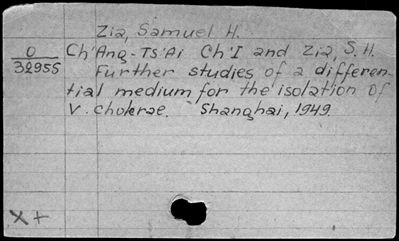 Zia, Samuel H.
O Ch'Ang-Ts'Ai Ch'I and Zia, S. H.
32955 Further studies of a differen-
tial medium for the isolation of
V. cholerae. Shanghai, 1949.
X+